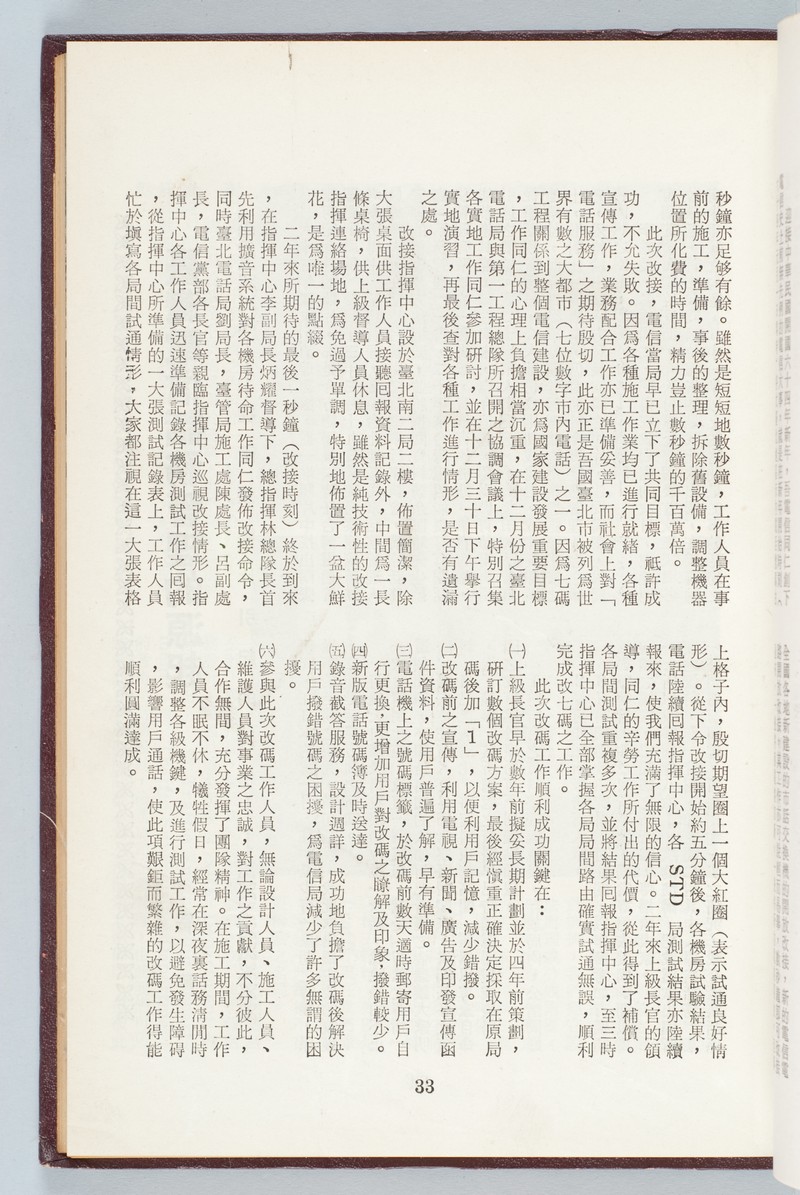 秒鐘亦足够有餘。雖然是短短地數秒鐘，工作人員在事
前的施工，準備，事後的整理，拆除舊設備，調整機器
位置所化費的時間，精力豈止數秒鐘的千百萬倍。
此次改接，電信當局早已立下了共同目標，祇許成
功，不允失敗。因爲各種施工作業均已進行就緒，各種
宣傳工作，業務配合工作亦已準備妥善，而社會上對「
電話服務」之期待殷切，此亦正是吾國臺北市被列爲世
界有數之大都市（七位數字市內電話）之一。因爲七碼
工程關係到整個電信建設，亦爲國家建設發展重要目標
，工作同仁的心理上負擔相當沉重，在十二月份之臺北
電話局與第一工程總隊所召開之協調會議上，特別召集
各實地工作同仁參加研討，並在十二月三十日下午舉行
實地演習，再最後查對各種工作進行情形，是否有遺漏
之處。
改接指揮中心設於臺北南二局二樓，佈置簡潔，除
大張桌面供工作人員接聽囘報資料記錄外，中間爲一長
條桌椅，供上級督導人員休息，雖然是純技術性的改接
指揮連絡場地，爲免過予單調，特別地佈置了一盆大鮮
花，是爲唯一的點綴。
二年來所期待的最後一秒鐘（改接時刻）終於到來
，在指揮中心李副局長炳耀督導下，總指揮林總隊長首
先利用擴音系統對各機房待命工作同仁發佈改接命令，
同時臺北電話局劉局長，臺管局施工處陳處長、呂副處
長，電信黨部各長官等親臨指揮中心巡視改接情形。指
揮中心各工作人員迅速準備記錄各機房測試工作之囘報
，從指揮中心所準備的一大張測試記錄表上，工作人員
忙於塡寫各局間試通情形，大家都注視在這一大張表格
上格子內，殷切期望圈上一個大紅圈（表示試通良好情
形）。從下令改接開始約五分鐘後，各機房試驗結果，
電話陸續囘報指揮中心，各 STD 局測試結果亦陸續
報來，使我們充滿了無限的信心。二年來上級長官的領
導，同仁的辛勞工作所付出的代價，從此得到了補償。
各局間測試重複多次，並將結果囘報指揮中心，至三時
指揮中心已全部掌握各局局間路由確實試通無誤，順利
完成改七碼之工作。
此次改碼工作順利成功關鍵在：
㈠上級長官早於數年前擬妥長期計劃並於四年前策劃，
研訂數個改碼方案，最後經愼重正確決定採取在原局
碼後加「1」，以便利用戶記憶，減少錯撥。
㈡改碼前之宣傳，利用電視、新聞、廣告及印發宣傳函
件資料，使用戶普遍了解，早有準備。
㈢電話機上之號碼標籤，於改碼前數天適時郵寄用戶自
行更換，更增加用戶對改碼之瞭解及印象，撥錯較少。
㈣新版電話號碼簿及時送達。
㈤錄音截答服務，設計週詳，成功地負擔了改碼後解決
用戶撥錯號碼之困擾，爲電信局減少了許多無謂的困
擾。
㈥參與此次改碼工作人員，無論設計人員、施工人員、
維護人員對事業之忠誠，對工作之貢獻，不分彼此，
合作無間，充分發揮了團隊精神。在施工期間，工作
人員不眠不休，犧牲假日，經常在深夜裏話務淸閒時
，調整各級機鍵，及進行測試工作，以避免發生障碍
，影響用戶通話，使此項艱鉅而繁雜的改碼工作得能
順利圓滿達成。
33